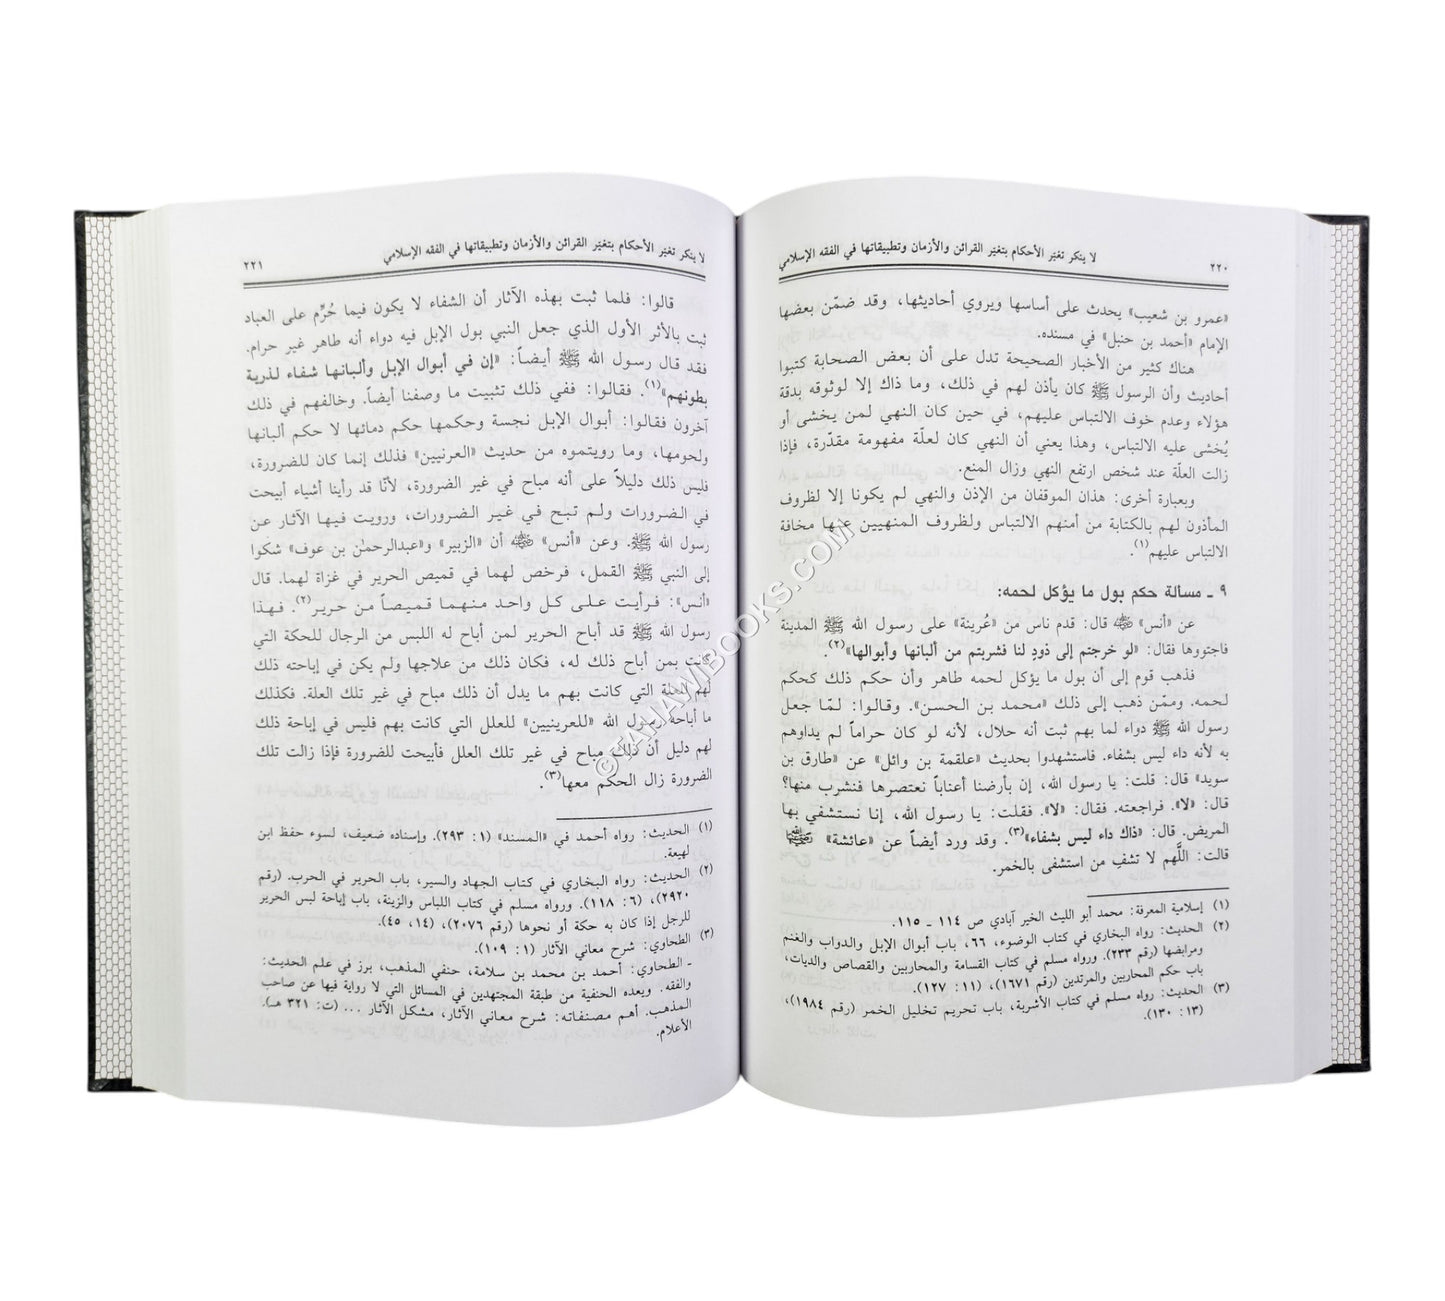 لا ينكر تغيّر الأحكام بتغيّر القرائن والأزمان وتطبيقاتها في الفقه الإسلامي
٢٢٠
«عمرو بن شعيب» يحدث على أساسها ويروي أحاديثها، وقد ضمّن بعضها
الإمام «أحمد بن حنبل» في مسنده.
هناك كثير من الأخبار الصحيحة تدل على أن بعض الصحابة كتبوا
أحاديث وأن الرسول ﷺ كان يأذن لهم في ذلك، وما ذاك إلا لوثوقه بدقة
هؤلاء وعدم خوف الالتباس عليهم، في حين كان النهي لمن يخشى أو
يُخشى عليه الالتباس، وهذا يعني أن النهي كان لعلّة مفهومة مقدّرة، فإذا
زالت العلّة عند شخص ارتفع النهي وزال المنع.
وبعبارة أخرى: هذان الموقفان من الإذن والنهي لم يكونا إلا لظروف
المأذون لهم بالكتابة من أمنهم الالتباس ولظروف المنهيين عنها مخافة
الالتباس عليهم(١).
٩ ـ مسألة حكم بول ما يؤكل لحمه:
عن «أنس» رضي الله عنه قال: قدم ناس من «عُرينة» على رسول الله ﷺ المدينة
فاجتووها فقال: «لو خرجتم إلى ذودٍ لنا فشربتم من ألبانها وأبوالها»(٢).
فذهب قوم إلى أن بول ما يؤكل لحمه طاهر وأن حكم ذلك كحكم
لحمه. وممّن ذهب إلى ذلك «محمد بن الحسن». وقالوا: لمّا جعل
رسول الله ﷺ دواء لما بهم ثبت أنه حلال، لأنه لو كان حراماً لم يداوهم
به لأنه داء ليس بشفاء. فاستشهدوا بحديث «علقمة بن وائل» عن «طارق بن
سويد» قال: قلت: يا رسول الله، إن بأرضنا أعناباً نعتصرها فنشرب منها؟
قال: «لا». فراجعته. فقال: «لا». فقلت: يا رسول الله، إنا نستشفي بها
المريض. قال: «ذاك داء ليس بشفاء»(٣). وقد ورد أيضاً عن «عائشة» رضي الله عنها
قالت: اللَّهم لا تشفِ من استشفى بالخمر.
(١) إسلامية المعرفة: محمد أبو الليث الخير آبادي ص ١١٤ ـ ١١٥.
(٢) الحديث: رواه البخاري في كتاب الوضوء، ٦٦، باب أبوال الإبل والدواب والغنم
ومرابضها (رقم ٢٣٣). ورواه مسلم في كتاب القسامة والمحاربين والقصاص والديات،
باب حكم المحاربين والمرتدين (رقم ١٦٧١)، (١١: ١٢٧).
(٣) الحديث: رواه مسلم في كتاب الأشربة، باب تحريم تخليل الخمر (رقم ١٩٨٤)،
(١٣: ١٣٠).
لا ينكر تغيّر الأحكام بتغيّر القرائن والأزمان وتطبيقاتها في الفقه الإسلامي
٢٢١
قالوا: فلما ثبت بهذه الآثار أن الشفاء لا يكون فيما حُرِّم على العباد
ثبت بالأثر الأول الذي جعل النبي بول الإبل فيه دواء أنه طاهر غير حرام.
فقد قال رسول الله ﷺ أيضاً: «إن في أبوال الإبل وألبانها شفاء لذرية
بطونهم»(١). فقالوا: ففي ذلك تثبيت ما وصفنا أيضاً. وخالفهم في ذلك
آخرون فقالوا: أبوال الإبل نجسة وحكمها حكم دمائها لا حكم ألبانها
ولحومها، وما رويتموه من حديث «العرنيين» فذلك إنما كان للضرورة،
فليس ذلك دليلاً على أنه مباح في غير الضرورة، لأنّا قد رأينا أشياء أبيحت
في الضرورات ولم تبح في غير الضرورات، ورويت فيها الآثار عن
رسول الله ﷺ. وعن «أنس» رضي الله عنه أن «الزبير» و«عبدالرحمٰن بن عوف» شكوا
إلى النبي ﷺ القمل، فرخص لهما في قميص الحرير في غزاة لهما. قال
«أنس»: فرأيت على كل واحد منهما قميصاً من حرير(٢). فهذا
رسول الله ﷺ قد أباح الحرير لمن أباح له اللبس من الرجال للحكة التي
كانت بمن أباح ذلك له، فكان ذلك من علاجها ولم يكن في إباحته ذلك
لهم للعلة التي كانت بهم ما يدل أن ذلك مباح في غير تلك العلة. فكذلك
ما أباحه رسول الله «للعرينيين» للعلل التي كانت بهم فليس في إباحة ذلك
لهم دليل أن ذلك مباح في غير تلك العلل فأبيحت للضرورة فإذا زالت تلك
الضرورة زال الحكم معها(٣).
(١) الحديث: رواه أحمد في «المسند» (١: ٢٩٣). وإسناده ضعيف، لسوء حفظ ابن
لهيعة.
(٢) الحديث: رواه البخاري في كتاب الجهاد والسير، باب الحرير في الحرب. (رقم
٢٩٢٠)، (٦: ١١٨). ورواه مسلم في كتاب اللباس والزينة، باب إباحة لبس الحرير
للرجل إذا كان به حكة أو نحوها (رقم ٢٠٧٦)، (١٤، ٤٥).
(٣) الطحاوي: شرح معاني الآثار (١: ١٠٩).
ـ الطحاوي: أحمد بن محمد بن سلامة، حنفي المذهب، برز في علم الحديث:
والفقه. ويعده الحنفية من طبقة المجتهدين في المسائل التي لا رواية فيها عن صاحب
المذهب. أهم مصنفاته: شرح معاني الآثار، مشكل الآثار ... (ت: ٣٢١ هـ).
الأعلام.
©TAHAWIBOOKS.COM